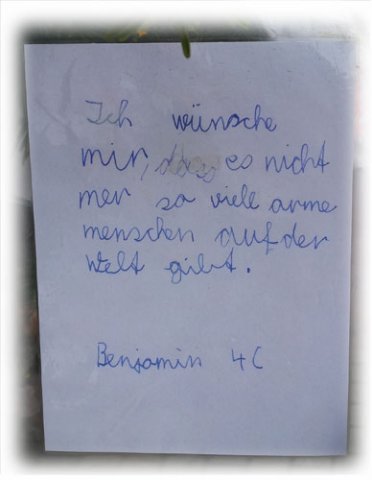 Ich wünsche
mir, dass es nicht
mer so viele arme
menschen auf der
Welt gibt.
Benjamin 4C